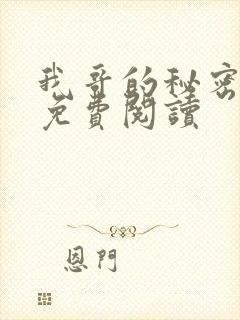 我哥的秘密
免費閱讀
恩門